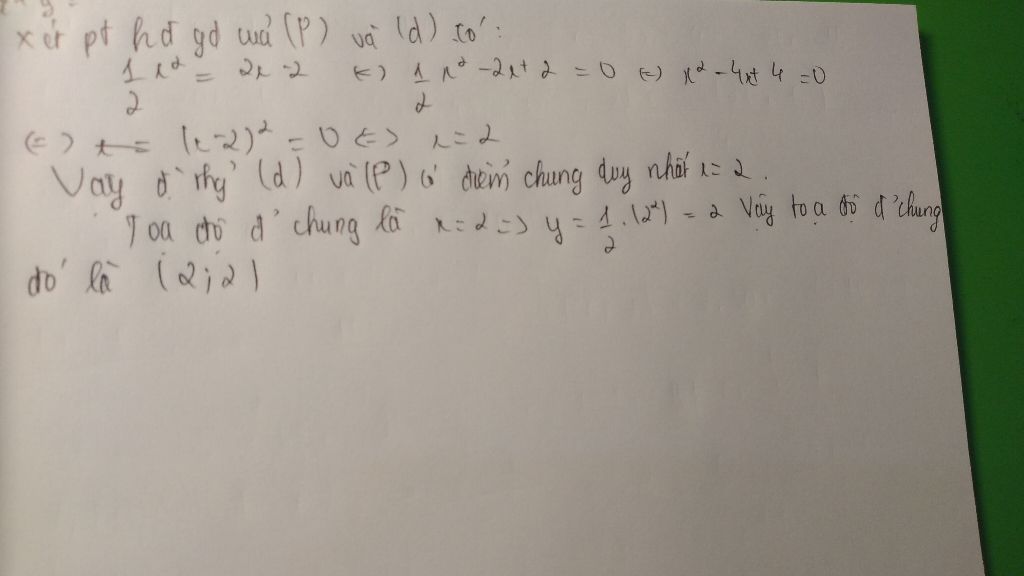 xét pt hđ gđ của (P) và (d) có:
1/2 x² = 2x - 2 <=> 1/2 x² - 2x + 2 = 0 <=> x² - 4x + 4 = 0
<=> (x-2)² = 0 <=> x = 2
Vậy (d) và (P) có điểm chung duy nhất x = 2.
Tọa độ đ' chung là x = 2 => y = 1/2 . (2²) = 2 Vậy tọa độ đ' chung
đó là (2;2)